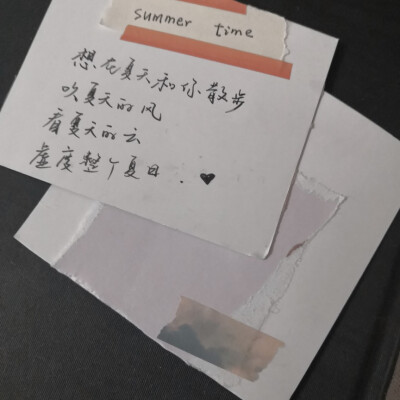 summer time
想在夏天和你散步
吹夏天的风
看夏天的云
虚度整个夏日.♥